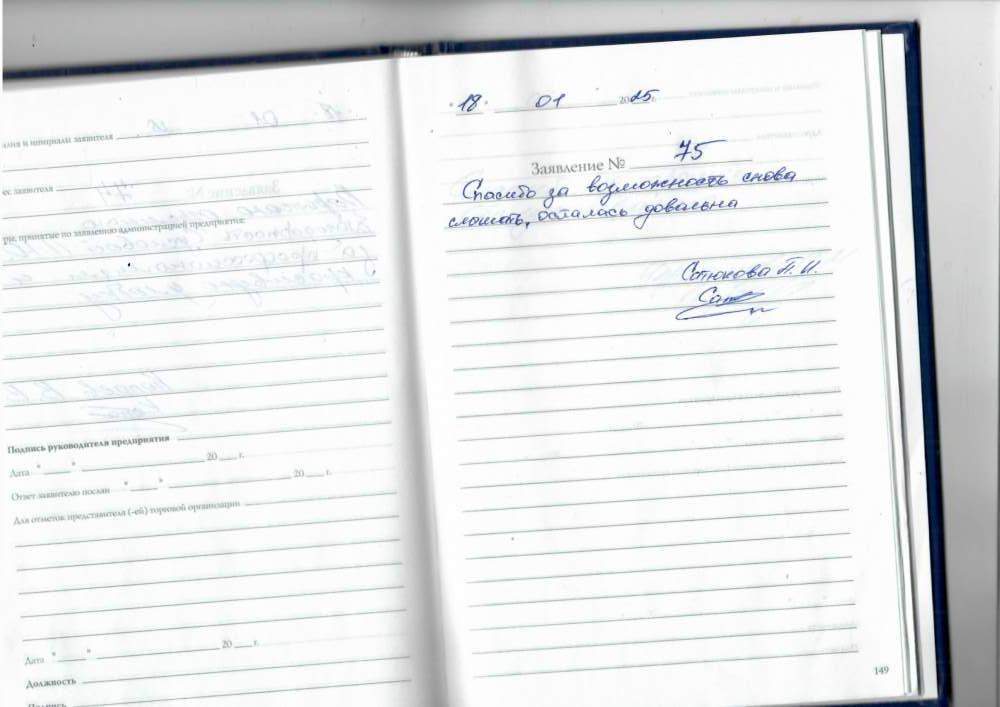 алия и инициалы заявителя
ес заявителя
ры, принятые по заявлению администрацией предприятия:
Подпись руководителя предприятия
Дата " " 20 г.
Ответ заявителю послан " " 20 г.
Для отметок представителя (-ей) торговой организации
Дата " " 20 г.
Должность
Подпись
"18" 01 2025г.
Заявление № 75
Спасибо за возможность снова
слышать, осталась довальна
П. И.
149